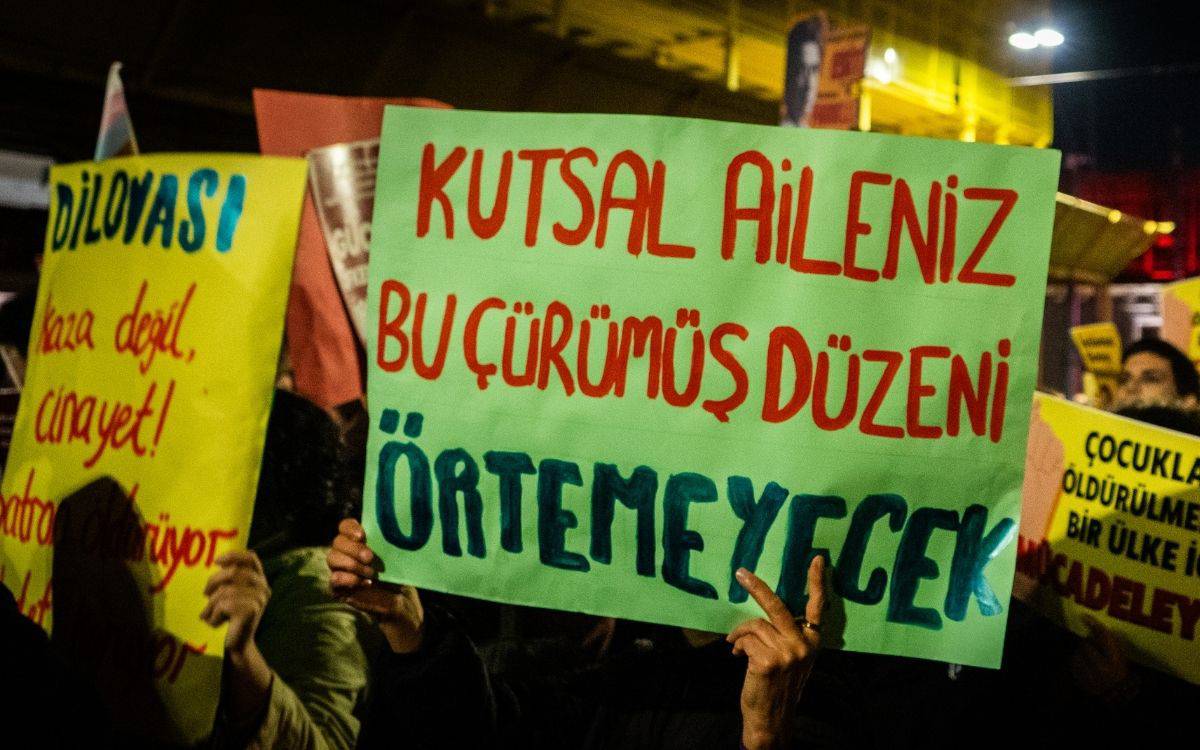 DİLOVASI
Kaza değil,
cinayet!
KUTSAL AİLENİZ
BU ÇÜRÜMÜŞ DÜZENİ
ÖRTEMEYECEK
ÇOCUKLA
ÖLDÜRÜLME
BİR ÜLKE İÇ
MÜCADELEY